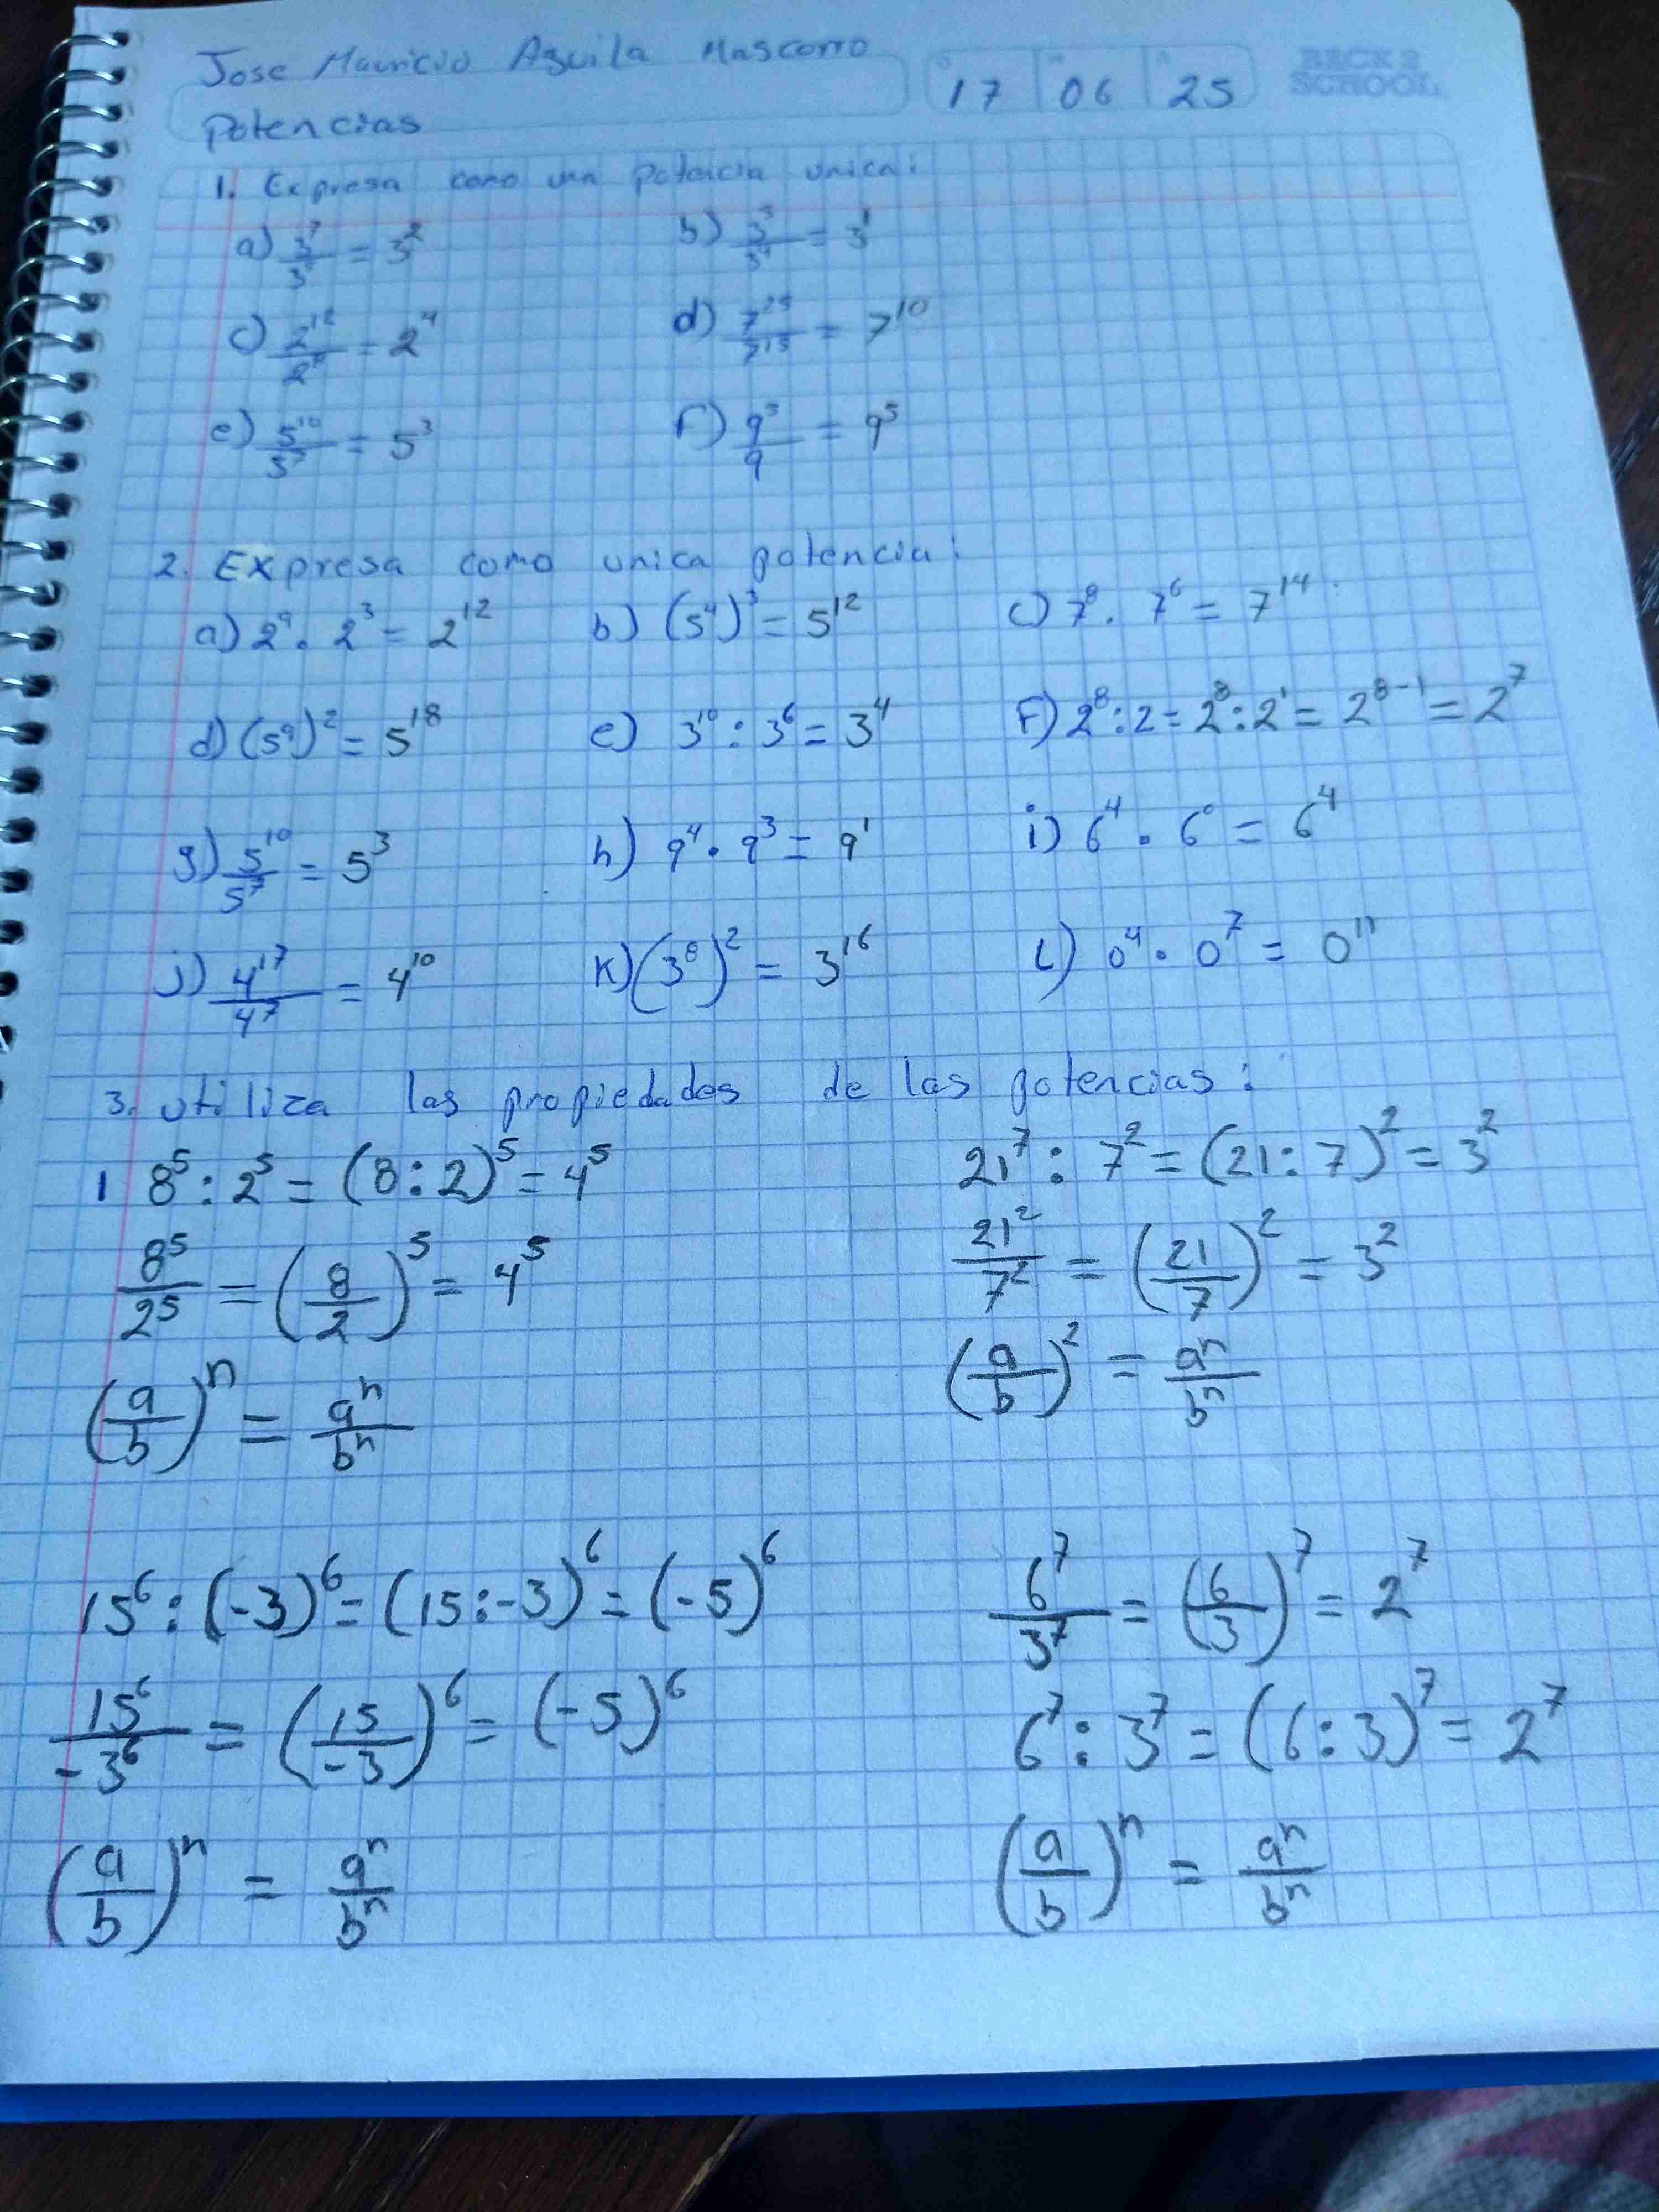 Jose Mauricio Aguila Mascorro
17 06 25
SCHOOL
Potencias
1. Expresa como una potencia unica:
a) 3⁷/3⁵ = 3² b) 3⁵/3⁴ = 3¹
c) 2¹²/2⁸ = 2⁴ d) 7²⁵/7¹⁵ = 7¹⁰
e) 5¹⁰/5⁷ = 5³ f) 9⁵/9 = 9⁵
2. Expresa como unica potencia:
a) 2⁹ · 2³ = 2¹² b) (5⁴)³ = 5¹² c) 7⁸ · 7⁶ = 7¹⁴
d) (5⁹)² = 5¹⁸ e) 3¹⁰ : 3⁶ = 3⁴ F) 2⁸ : 2 = 2⁸ : 2¹ = 2⁸⁻¹ = 2⁷
g) 5¹⁰/5⁷ = 5³ h) 9⁴ · 9³ = 9¹ i) 6⁴ · 6⁰ = 6⁴
j) 4¹⁷/4⁷ = 4¹⁰ K) (3⁸)² = 3¹⁶ L) 0⁴ · 0⁷ = 0¹¹
3. utiliza las propiedades de las potencias:
1 8⁵ : 2⁵ = (8 : 2)⁵ = 4⁵ 21⁷ : 7² = (21 : 7)² = 3²
8⁵/2⁵ = (8/2)⁵ = 4⁵ 21²/7² = (21/7)² = 3²
(a/b)ⁿ = aⁿ/bⁿ (a/b)² = aⁿ/bⁿ
15⁶ : (-3)⁶ = (15 : -3)⁶ = (-5)⁶ 6⁷/3⁷ = (6/3)⁷ = 2⁷
15⁶/-3⁶ = (15/-3)⁶ = (-5)⁶ 6⁷ : 3⁷ = (6 : 3)⁷ = 2⁷
(a/b)ⁿ = aⁿ/bⁿ (a/b)ⁿ = aⁿ/bⁿ